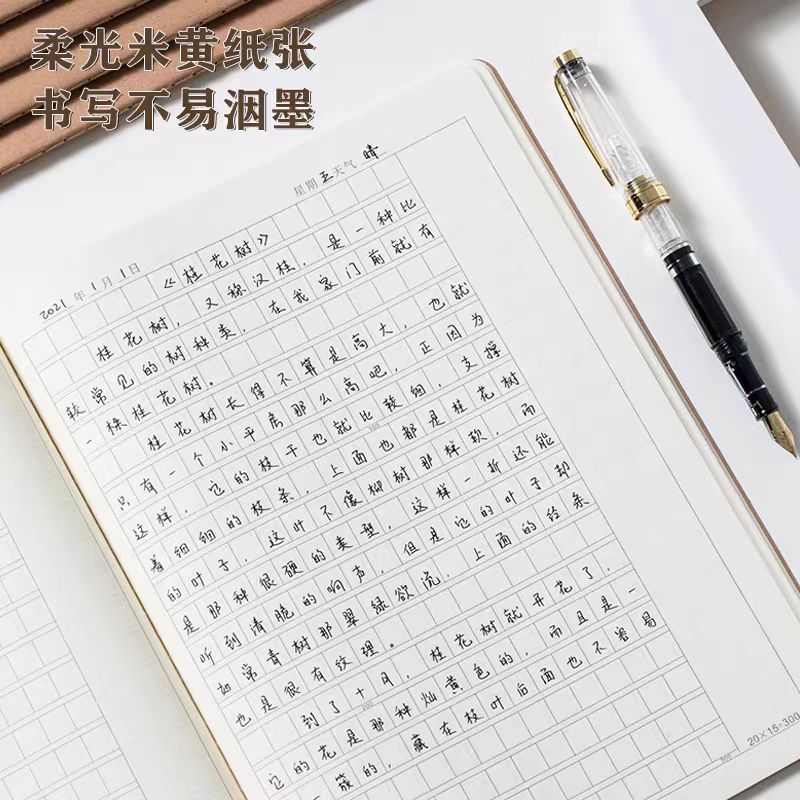 柔光米黄纸张
书写不易洇墨
星期五天气 晴
2021年1月1日
《桂花树》
桂花树，又称汉桂，是一种比
较常见的树种类，在我家门前就有
一棵桂花树。
桂花树长得不算是高大，也就
只有一个小平房那么高吧，正因为
这样，它的枝干也就比较细，支撑
着细细的枝条，上面也都是桂花树
的叶子，这叶不像柳树那样软，而
是那种很硬的类型，这样一折还能
听到清脆的响声，但是它的叶子却
如常青树那翠绿欲流，上面的经条
也是很有纹理。
到了十月，桂花树就开花了，
它的花是那种灿黄色的，而且是一
一簇的，藏在枝叶后面也不容易
100
200
300
20×15=300